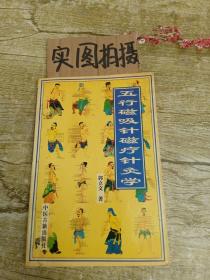 实图拍摄
五行磁吸针磁疗针灸学
郭立文 著
中医古籍出版社